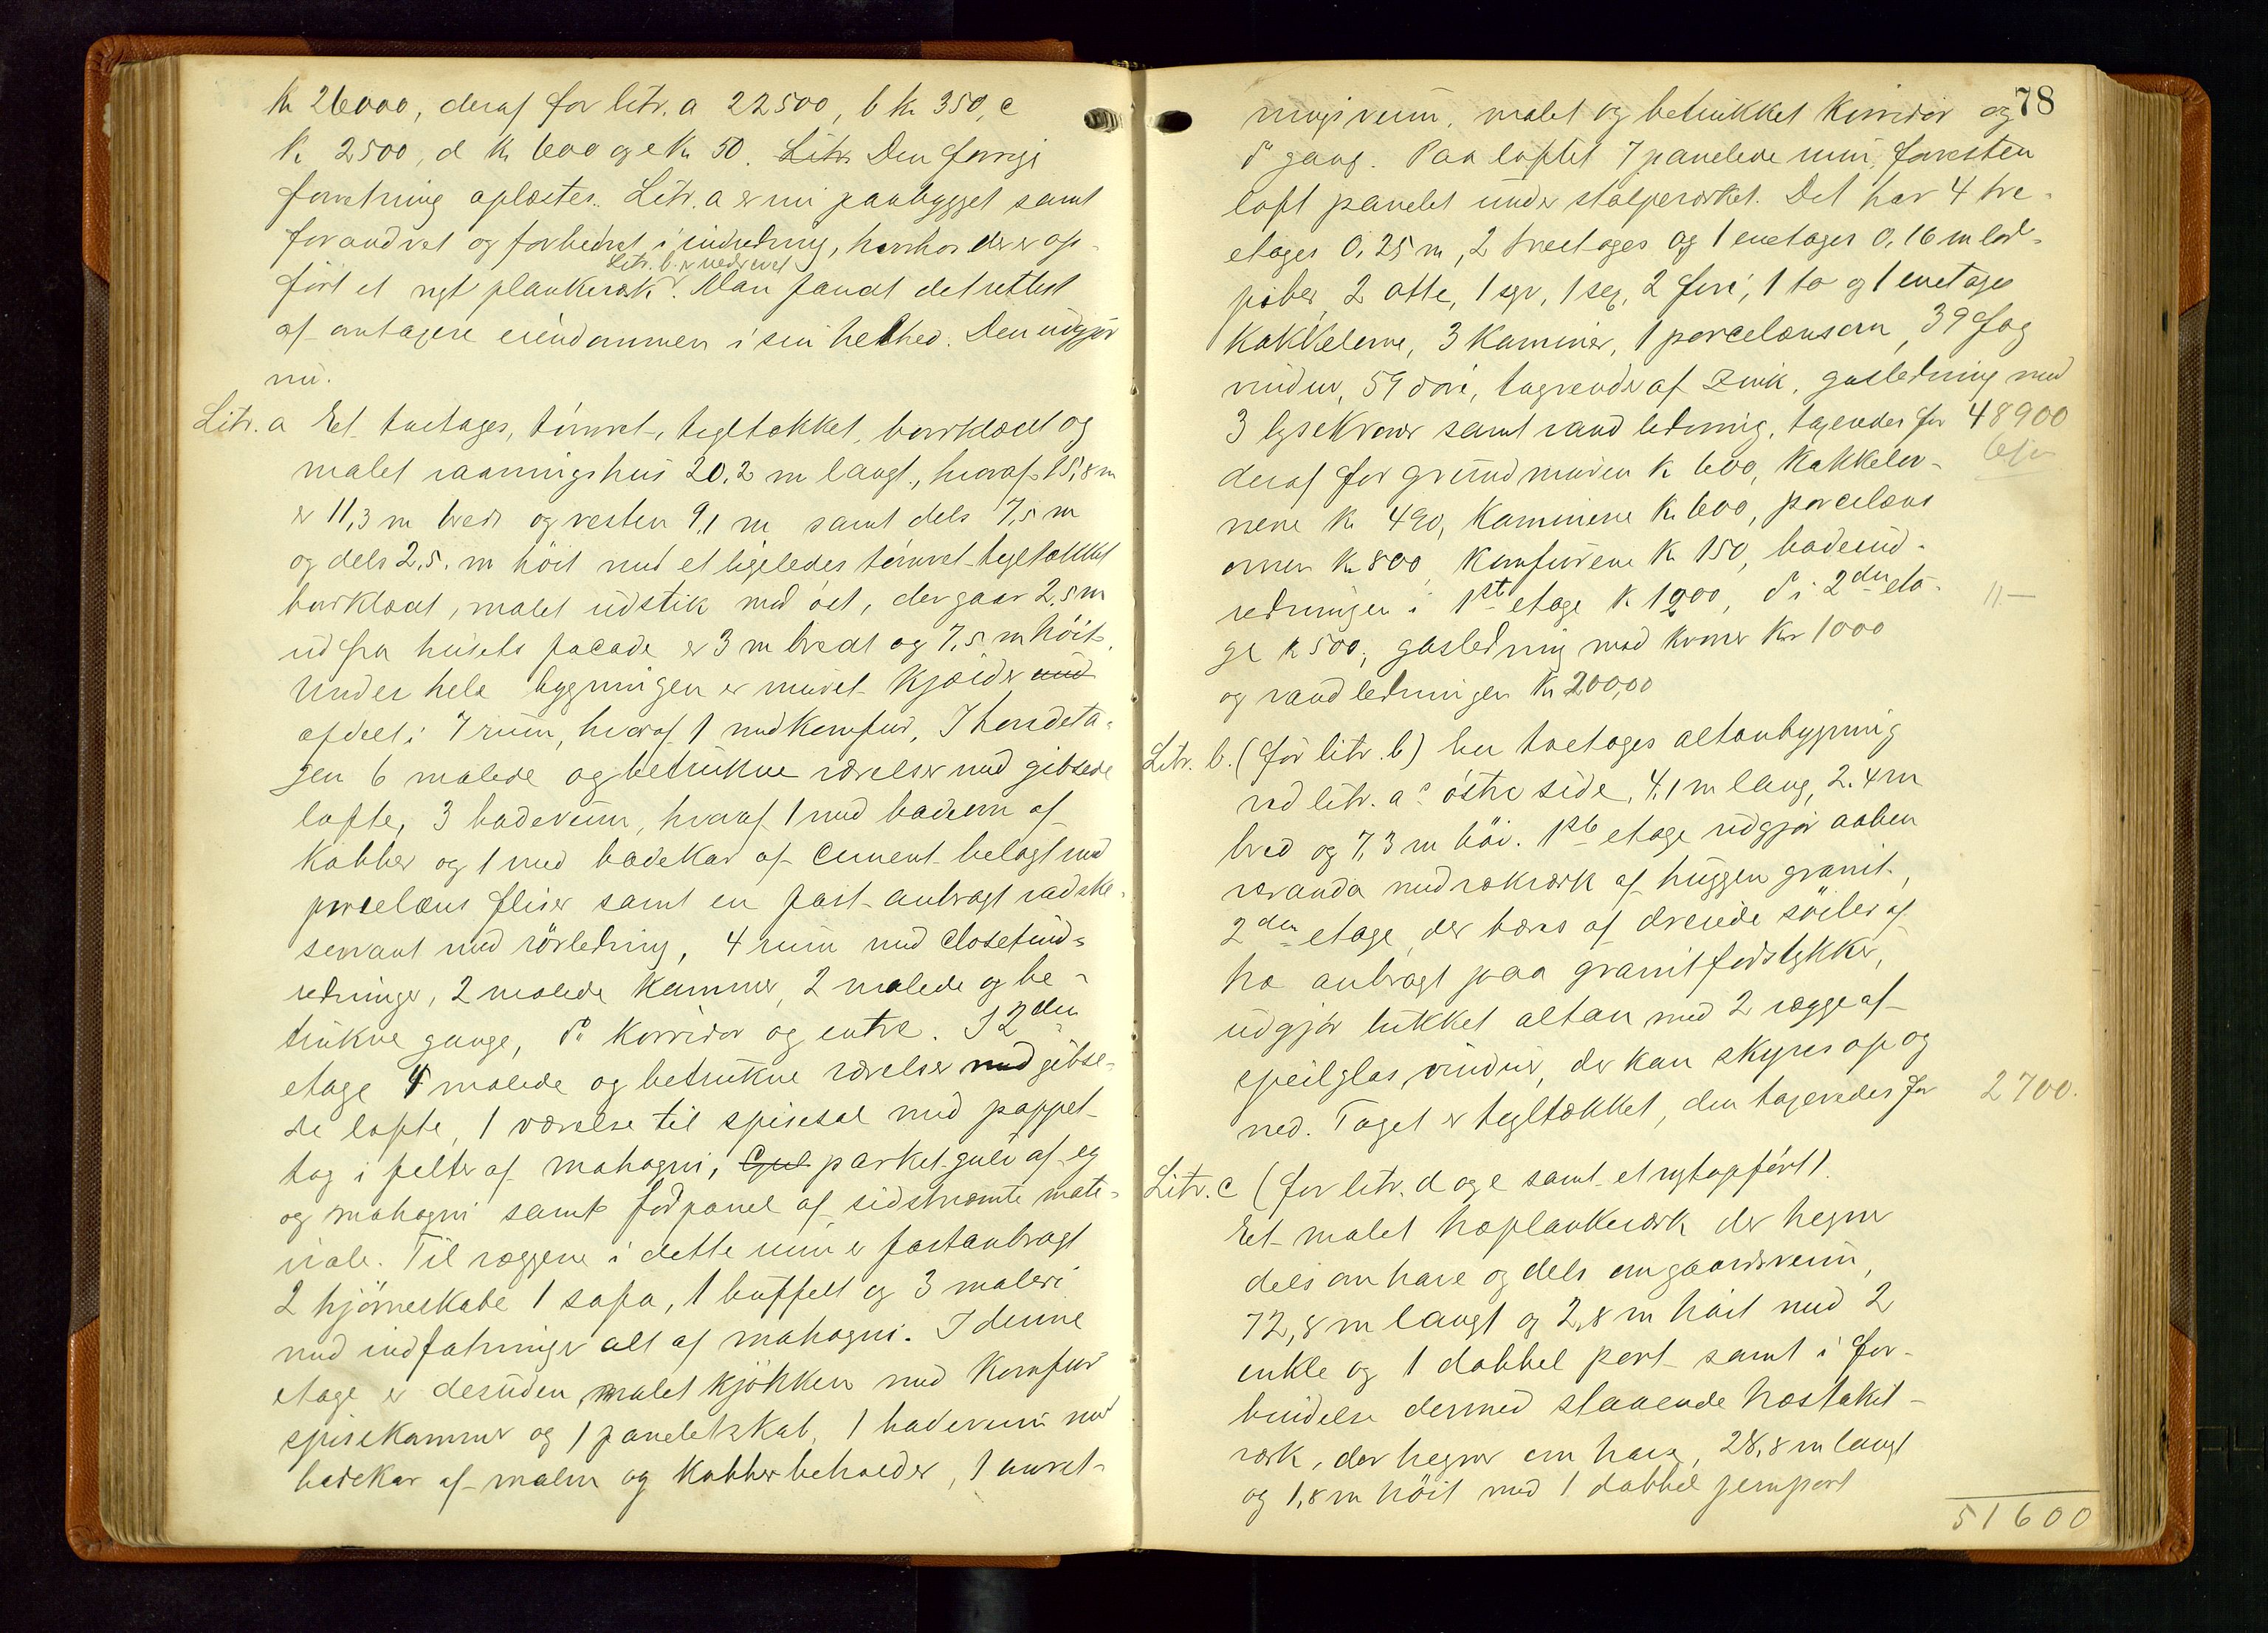 Kr 26000, deraf for litr. a 22500, b kr 350, c
kr 2500, d kr 600 og e kr 50. Litr. Den forrige
forretning oplæstes. Litr. a er nu paabygget samt
forandret og forbedret i indredning, hvorhos der er op-
Litr. b. er nedrevet
ført et nyt plankeværk. Man fandt det rettest
at omtaxere eiendommen i sin helhed. Den udgjør
nu.
Litr. a Et toetages, tømret, tegltækket, bordklædt og
malet vaaningshus 20,2 m langt, hvoraf 15,8 m
er 11,3 m bredt og resten 9,1 m samt dels 7,5 m
og dels 2,5 m høit med et ligeledes tømret tegltækket
bordklædt, malet udstik mod øst, der gaar 2,5 m
ud fra husets facade er 3 m bredt og 7,5 m høit.
Under hele bygningen er muret kjælder med
afdelt i 7 rum, hvoraf 1 med komfur, I hovedeta-
gen 6 malede og betrukne værelser med gibsede
lofte, 3 baderum, hvoraf 1 med badeovn af
kobber og 1 med badekar af cement belagt med
porcelæns fliser samt en fast anbragt vadske-
servant med rørledning, 4 rum med closetind-
redninger, 2 malede kammer, 2 malede og be-
trukne gange, do korridor og entre. I 2den
etage 4 malede og betrukne værelser med gibse-
de lofte, 1 værelse til spisesal med pappet-
tag i felter af mahogni, Gul parket gulv af eg
og mahogni samt fodpanel af sidstnævnte mate-
riale. Til væggene i dette rum er fastanbragt
2 hjørneskabe 1 sofa, 1 buffett og 3 maleri
med indfatninger alt af mahogni. I denne
etage er desuden malet kjøkken med komfur
spisekammer og 1 paneletskab, 1 baderum med
badekar af malm og kobberbeholder, 1 anret-
78
ningsrum, malet og betrukket korridor og
do gang. Paa loftet 7 panelede rum, forresten
loft panelet under stolpeværket. Det har 4 tre-
etages 0,25 m, 2 treetages og 1 enetages 0,16 m lod-
piber, 2 otte, 1 syv, 1 sex, 2 fire, 1 to og 1 enetages
kakkelovne, 3 kaminer, 1 porcelænsovn, 39 fag
vinduer, 59 døre, tagrender af zink, gasledning med
3 lysekroner samt vandledning, taxeredes for 48900
deraf for grundmuren kr 600, kakkelov-
nene kr 490, kaminene kr 600, porcelæns
ovnen kr 800, komfurene kr 150, badeind-
redningen i 1ste etage kr 1200, do i 2den eta-
ge kr 500, gasledning med kroner kr 1000
og vandledningen kr 200,00
Litr. b. (før litr. b) En toetages altanbygning
ved litr. a's østre side, 4,1 m lang, 2,4 m
bred og 7,3 m høi. 1ste etage udgjør aaben
veranda med rækværk af huggen granit,
2den etage, der bæres af dreiede søiler af
træ anbragt paa granitfodstykker,
udgjør lukket altan med 2 vægge af
speilglas vinduer, der kan skyves op og
ned. Taget er tegltækket, den taxeredes for 2700.
Litr. c (før litr. d og e samt et nytopført)
Et malet træplankeværk der hegner
dels om have og dels om gaardsrum,
72,8 m langt og 2,8 m høit med 2
enkle og 1 dobbel port samt i for-
bindelse dermed staaende træstaket-
værk, der hegner om have, 28,8 m langt
og 1,8 m høit med 1 dobbel jernport
51600